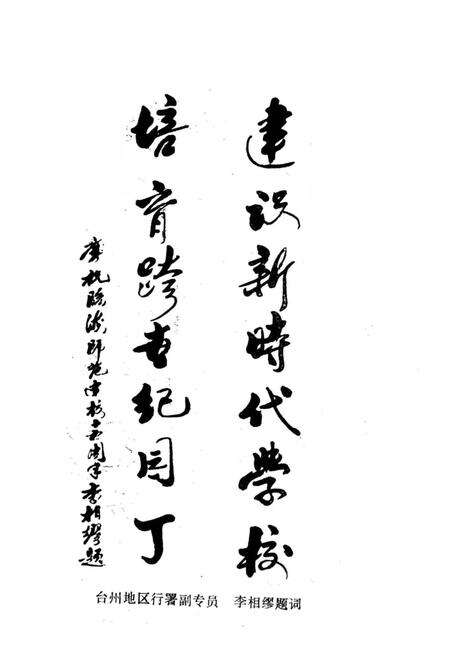 建设新時代学校
培育跨世纪园丁
庆祝临海师范建校十五周年李相缪题
台州地区行署副专员 李相缪题词